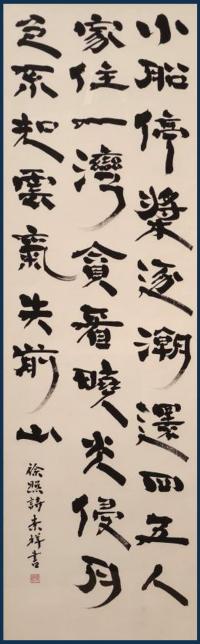 小船停槳逐潮還四五人
家住一灣貪看曉光侵月
色不知雲氣失前山
徐照詩 祥書